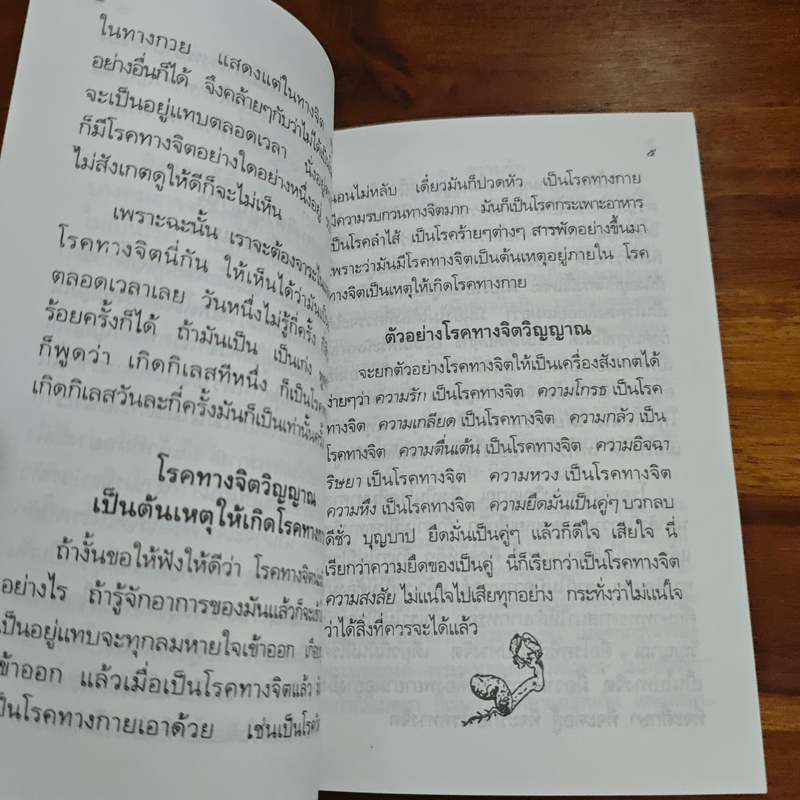 ในทางกวย แสดงแต่ในทางจิต
อย่างอื่นก็ได้ จึงคล้ายๆกับว่าไม่ได้เป็น
จะเป็นอยู่แทบตลอดเวลา นั่งอยู่
ก็มีโรคทางจิตอย่างใดอย่างหนึ่งอยู่
ไม่สังเกตดูให้ดีก็จะไม่เห็น
เพราะฉะนั้น เราจะต้องจาระไน
โรคทางจิตนี่กัน ให้เห็นได้ว่ามัน
ตลอดเวลาเลย วันหนึ่งไม่รู้กี่ครั้ง
ร้อยครั้งก็ได้ ถ้ามันเป็น เป็นเก่ง
ก็พูดว่า เกิดกิเลสทีหนึ่ง ก็เป็นโรค
เกิดกิเลสวันละกี่ครั้งมันก็เป็นเท่านั้น
โรคทางจิตวิญญาณ
เป็นต้นเหตุให้เกิดโรคทาง
ถ้างั้นขอให้ฟังให้ดีว่า โรคทางจิต
อย่างไร ถ้ารู้จักอาการของมันแล้วก็จะ
เป็นอยู่แทบจะทุกลมหายใจเข้าออก
เข้าออก แล้วเมื่อเป็นโรคทางจิตแล้ว
เป็นโรคทางกายเอาด้วย เช่นเป็นโรค
๕
นอนไม่หลับ เดี๋ยวมันก็ปวดหัว เป็นโรคทางกาย
มีความรบกวนทางจิตมาก มันก็เป็นโรคกระเพาะอาหาร
เป็นโรคลำไส้ เป็นโรคร้ายๆต่างๆ สารพัดอย่างขึ้นมา
เพราะว่ามันมีโรคทางจิตเป็นต้นเหตุอยู่ภายใน โรค
ทางจิตเป็นเหตุให้เกิดโรคทางกาย
ตัวอย่างโรคทางจิตวิญญาณ
จะยกตัวอย่างโรคทางจิตให้เป็นเครื่องสังเกตได้
ง่ายๆว่า ความรัก เป็นโรคทางจิต ความโกรธ เป็นโรค
ทางจิต ความเกลียด เป็นโรคทางจิต ความกลัว เป็น
โรคทางจิต ความตื่นเต้น เป็นโรคทางจิต ความอิจฉา
ริษยา เป็นโรคทางจิต ความหวง เป็นโรคทางจิต
ความหึง เป็นโรคทางจิต ความยึดมั่นเป็นคู่ๆ บวกลบ
ดีชั่ว บุญบาป ยึดมั่นเป็นคู่ๆ แล้วก็ดีใจ เสียใจ นี่
เรียกว่าความยึดของเป็นคู่ นี่ก็เรียกว่าเป็นโรคทางจิต
ความสงสัย ไม่แน่ใจไปเสียทุกอย่าง กระทั่งว่าไม่แน่ใจ
ว่าได้สิ่งที่ควรจะได้แล้ว